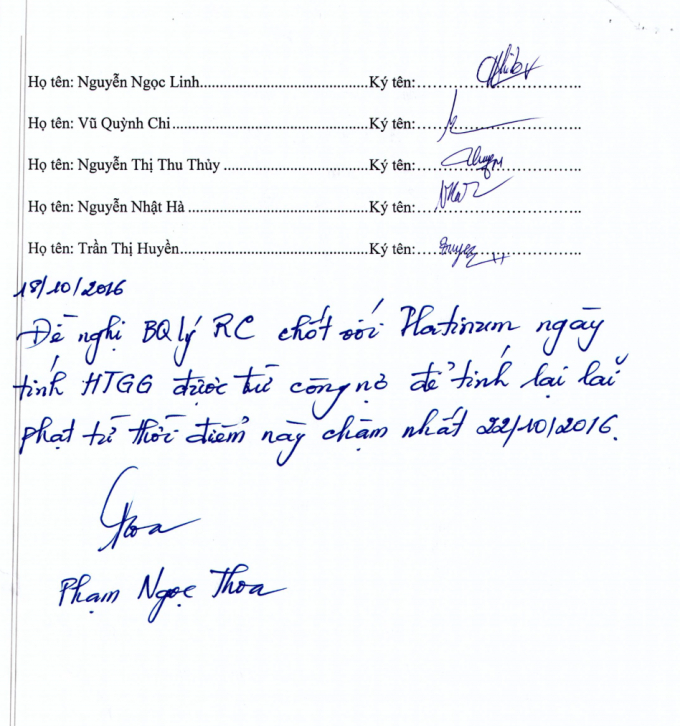 Họ tên: Nguyễn Ngọc Linh..........Ký tên:..........
Họ tên: Vũ Quỳnh Chi..........Ký tên:..........
Họ tên: Nguyễn Thị Thu Thủy..........Ký tên:..........
Họ tên: Nguyễn Nhật Hà..........Ký tên:..........
Họ tên: Trần Thị Huyền..........Ký tên:..........
18/10/2016
Đề nghị BQ lý RC chốt với Platinum ngày
tính HTGG được trừ công nợ để tính lại lãi
phạt từ thời điểm này chậm nhất 22/10/2016.
Thoa
Phạm Ngọc Thoa